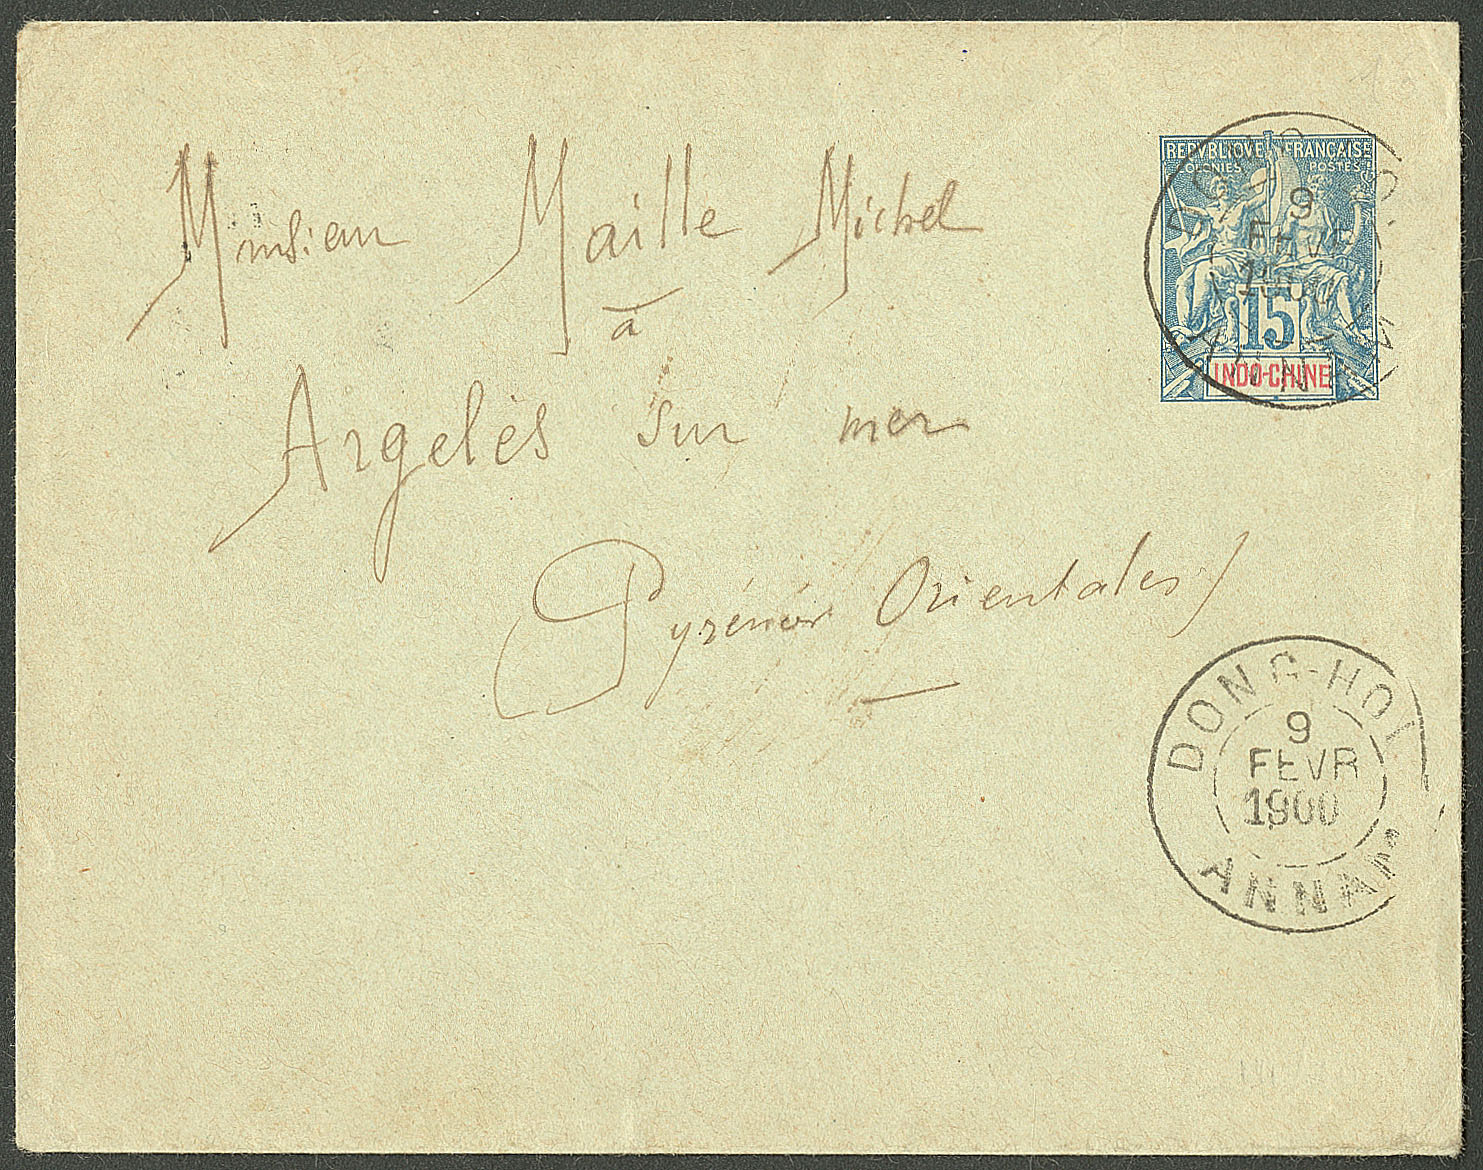 Monsieur Maille Michel
à
Argelès sur mer
Pyrénées Orientales
REPVBLIQVE FRANÇAISE
COLONIES POSTES
15
INDO-CHINE
9
FEVR
1900
DONG-HOI
9
FEVR
1900
ANNAM